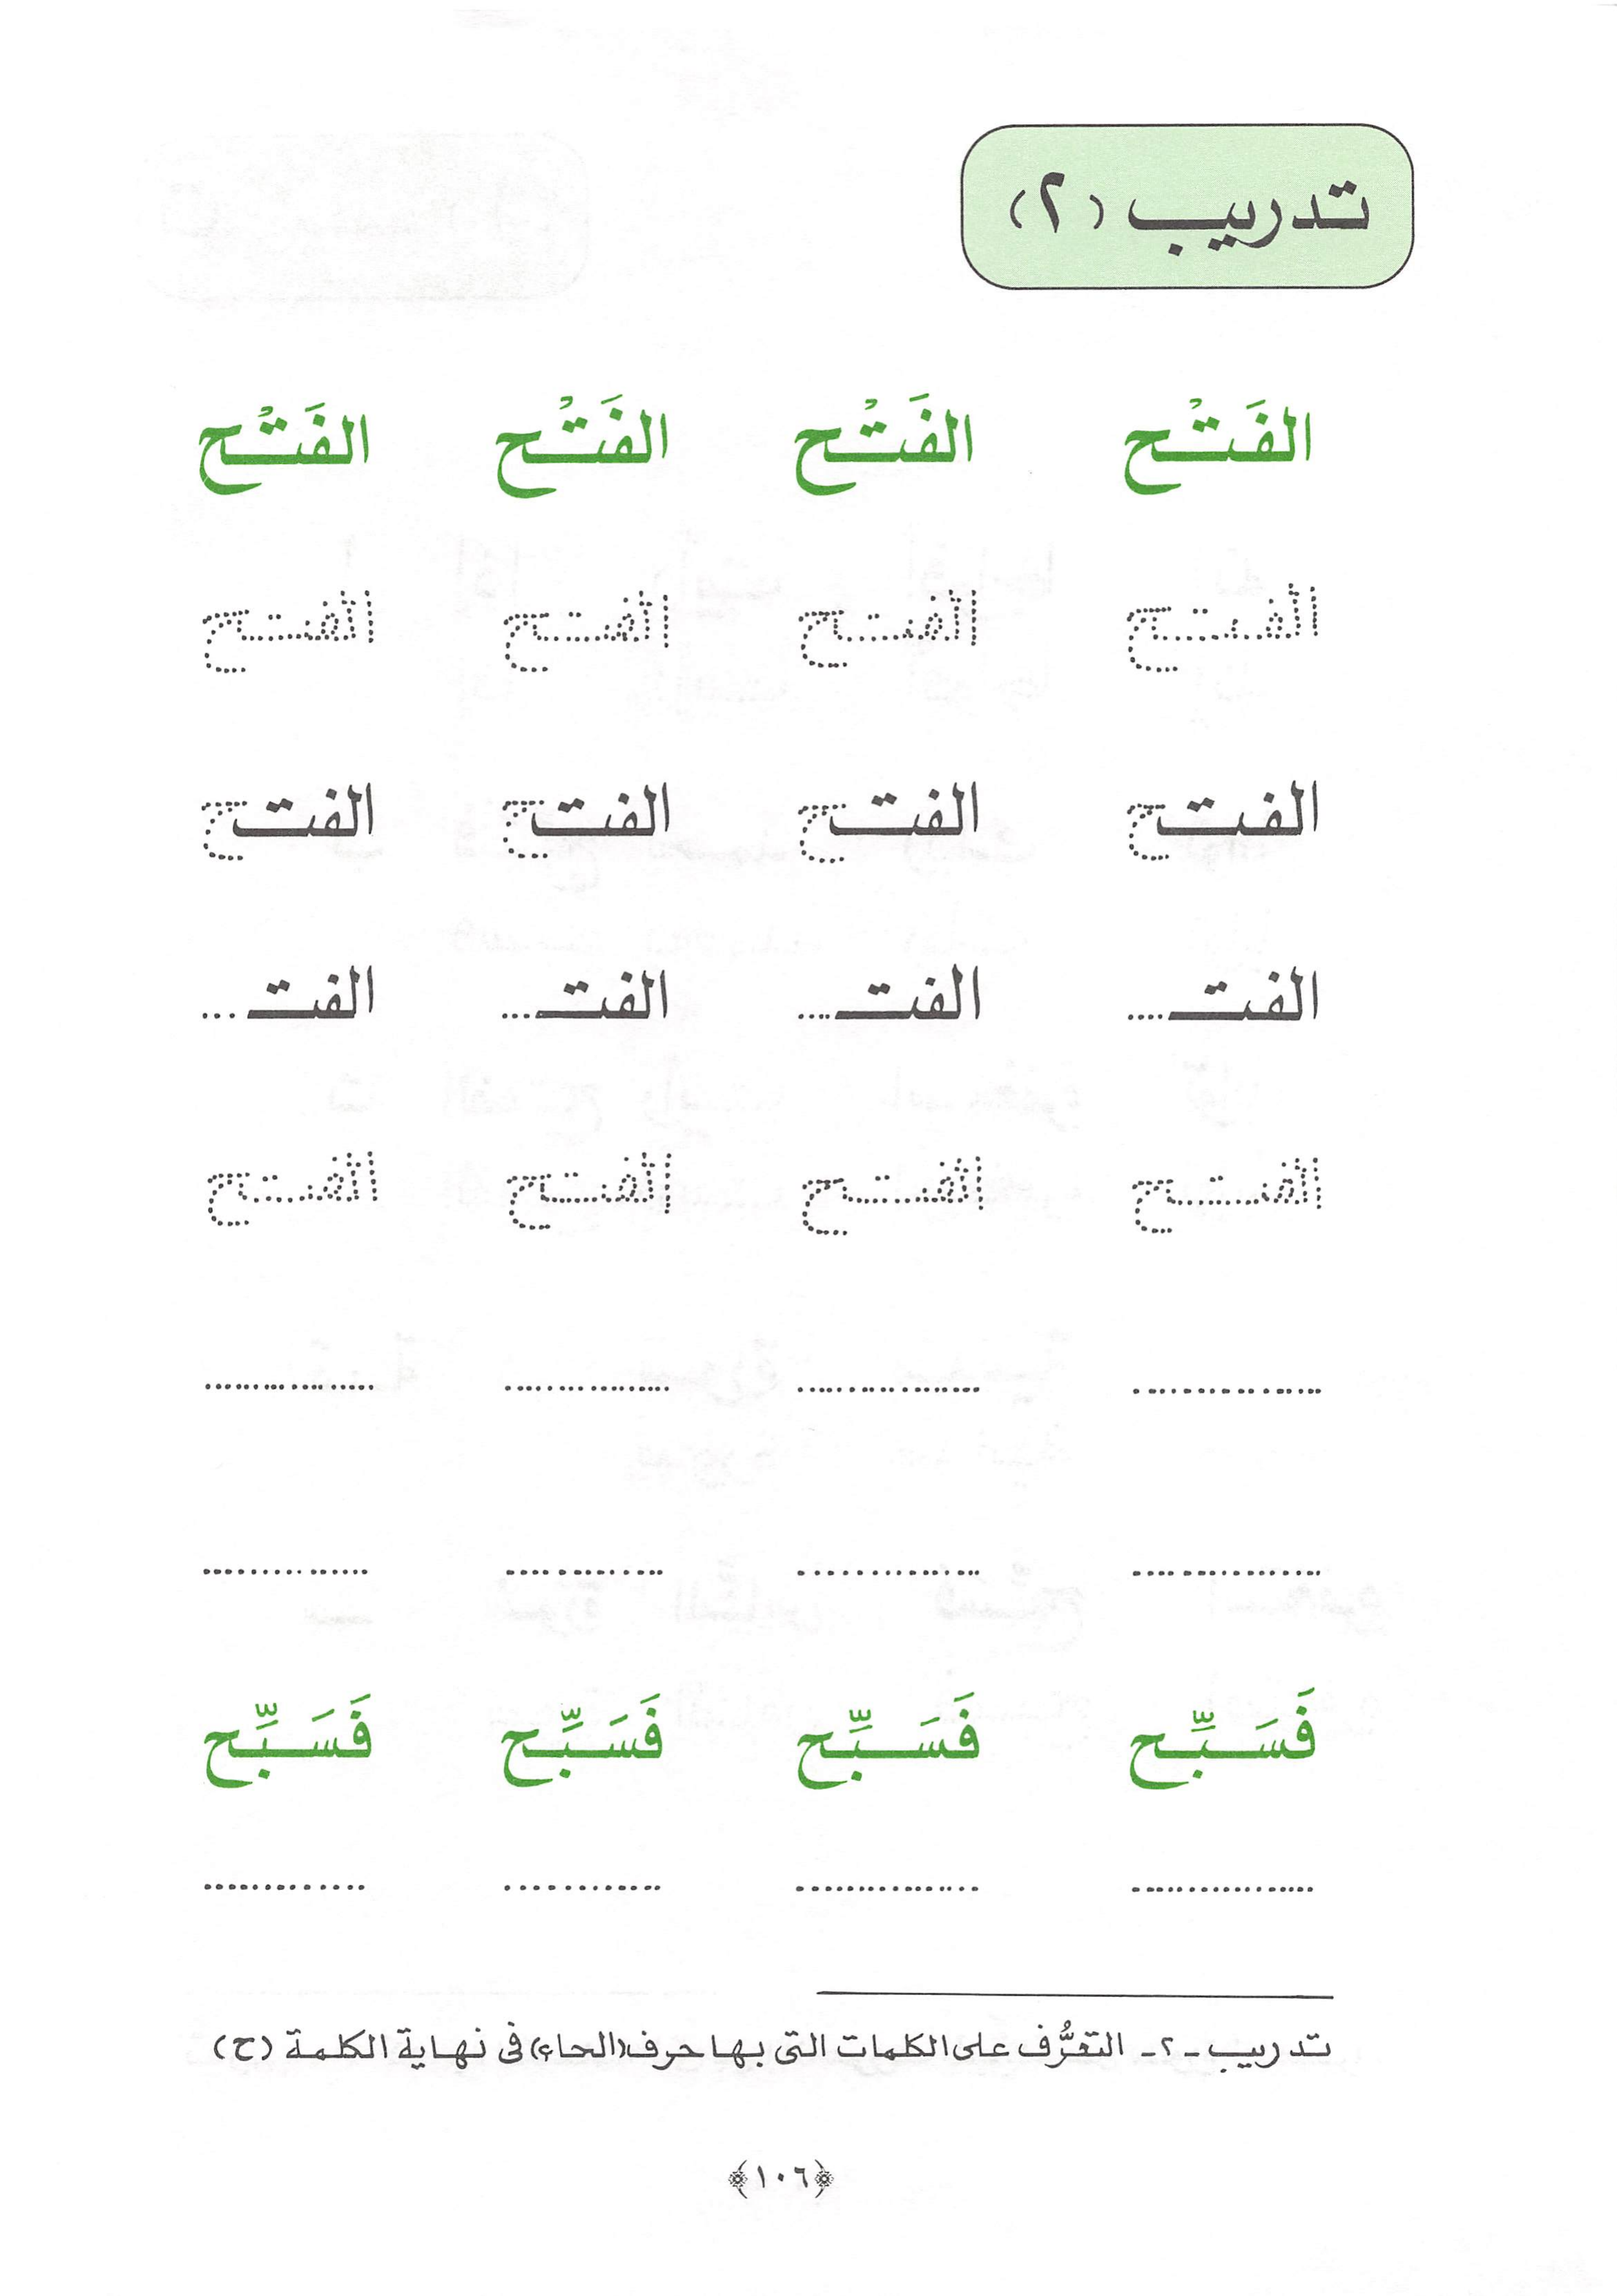 تدريب (٢)
الفَتْح الفَتْح الفَتْح الفَتْح
الفتح الفتح الفتح الفتح
الفتح الفتح الفتح الفتح
الفتـ.... الفتـ.... الفتـ... الفتـ...
الفتح الفتح الفتح الفتح
فَسَبِّح فَسَبِّح فَسَبِّح فَسَبِّح
تدريب -٢- التعرُّف على الكلمات التى بها حرف (الحاء) فى نهاية الكلمة (ح)
﴿١٠٦﴾